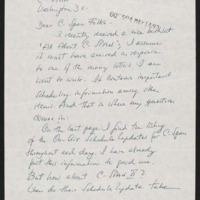 Washington D.C.
Dear C-Span Folks -
I recently received a nice booklet
"All About C-Span". I assume
it must have arrived in response
to one of the many letters I am
sent to write. It contains important
scheduling information among other
items. And that is where my question
comes in:
On the last page I find the listing
of the On-Air Schedule Updates for C-Span
throughout each day. I have already
put this information to good use.
But how about C-Span II?
When do these Schedule Updates take